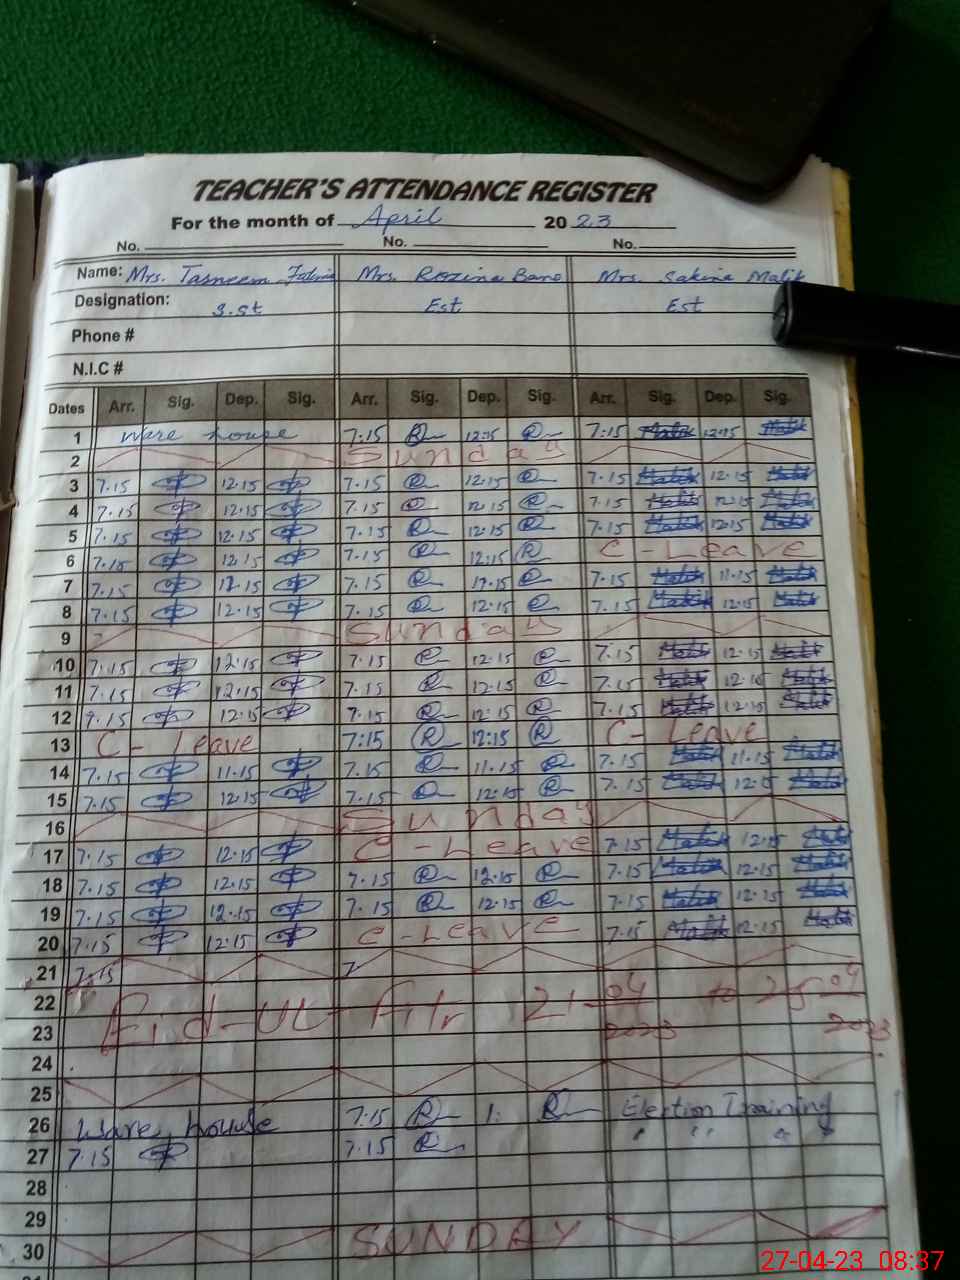 TEACHER'S ATTENDANCE REGISTER
For the month of April 2023
No. No. No.
Name: Mrs. Tasneem Mrs. Rozina Bano Mrs. Sakina Malik
Designation: Est Est
Phone #
N.I.C #
Dates Arr. Sig. Dep. Sig. Arr. Sig. Dep. Sig. Arr. Sig. Dep. Sig.
1 ware house 7:15 R 12:15 R 7:15 Malik 12:15 Malik
2 Sunday
3 7.15 12.15 7.15 R 12.15 R 7.15 Malik 12.15 Malik
4 7.15 12.15 7.15 R 12.15 R 7.15 Malik 12.15 Malik
5 7.15 12.15 7.15 R 12.15 R 7.15 Malik 12.15 Malik
6 7.15 12.15 7.15 R 12:15 R C-Leave
7 7.15 7.15 R R 7.15 Malik 11.15 Malik
8 7.15 12.15 7.15 R 12.15 R 7.15 Malik 12.15 Malik
9 Sunday
10 7.15 12.15 7.15 R 12.15 R 7.15 Malik 12.15 Malik
11 7.15 12.15 7.15 R 12.15 R 7.15 Malik Malik
12 12.15 7.15 R 12.15 R 7.15 Malik 12.15 Malik
13 C- Leave 7:15 R 12:15 R C- Leave
14 7.15 11.15 7.15 R 11.15 R 7.15 Malik 11.15 Malik
15 7.15 12.15 7.15 R 12.15 R 7.15 Malik Malik
16 Sunday
17 7.15 12.15 C-Leave 7.15 Malik 12.15 Malik
18 7.15 12.15 7.15 R 12.15 R 7.15 Malik 12.15 Malik
19 7.15 12.15 7.15 R 12.15 R 7.15 Malik 12.15 Malik
20 7.15 12.15 C-Leave 7.15 Malik 12.15 Malik
21 7.15 7
22 Eid-UL-Fitr 21-04 to 25-04
23 2023 2023
24
25
26 Ware house 7:15 R 1: R Election Training
27 7.15 7.15 R " " " "
28
29
30 SUNDAY
27-04-23 08:37